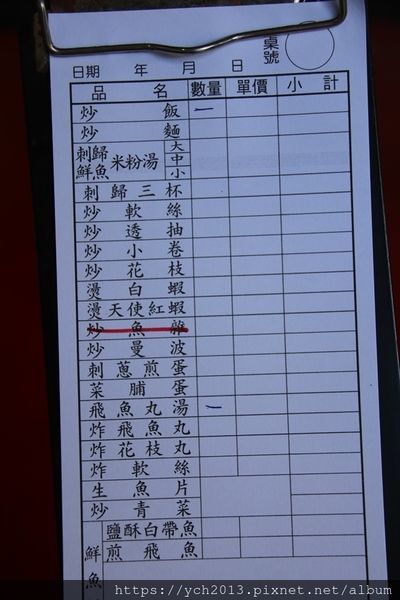 桌號
日期 年 月 日
品 名 數量 單價 小 計
炒 飯 一
炒 麵
刺歸鮮魚米粉湯 大 中 小
刺 歸 三 杯
炒 軟 絲
炒 透 抽
炒 小 卷
炒 花 枝
燙 白 蝦
燙 天使紅蝦
炒 魚
炒 曼 波
刺 蔥 煎 蛋
菜 脯 蛋
飛 魚 丸 湯 一
炸 飛 魚 丸
炸 花 枝 丸
炸 軟 絲
生 魚 片
炒 青 菜
鹽酥白帶魚
鮮 煎 飛 魚
魚
https://ych2013.pixnet.net/album